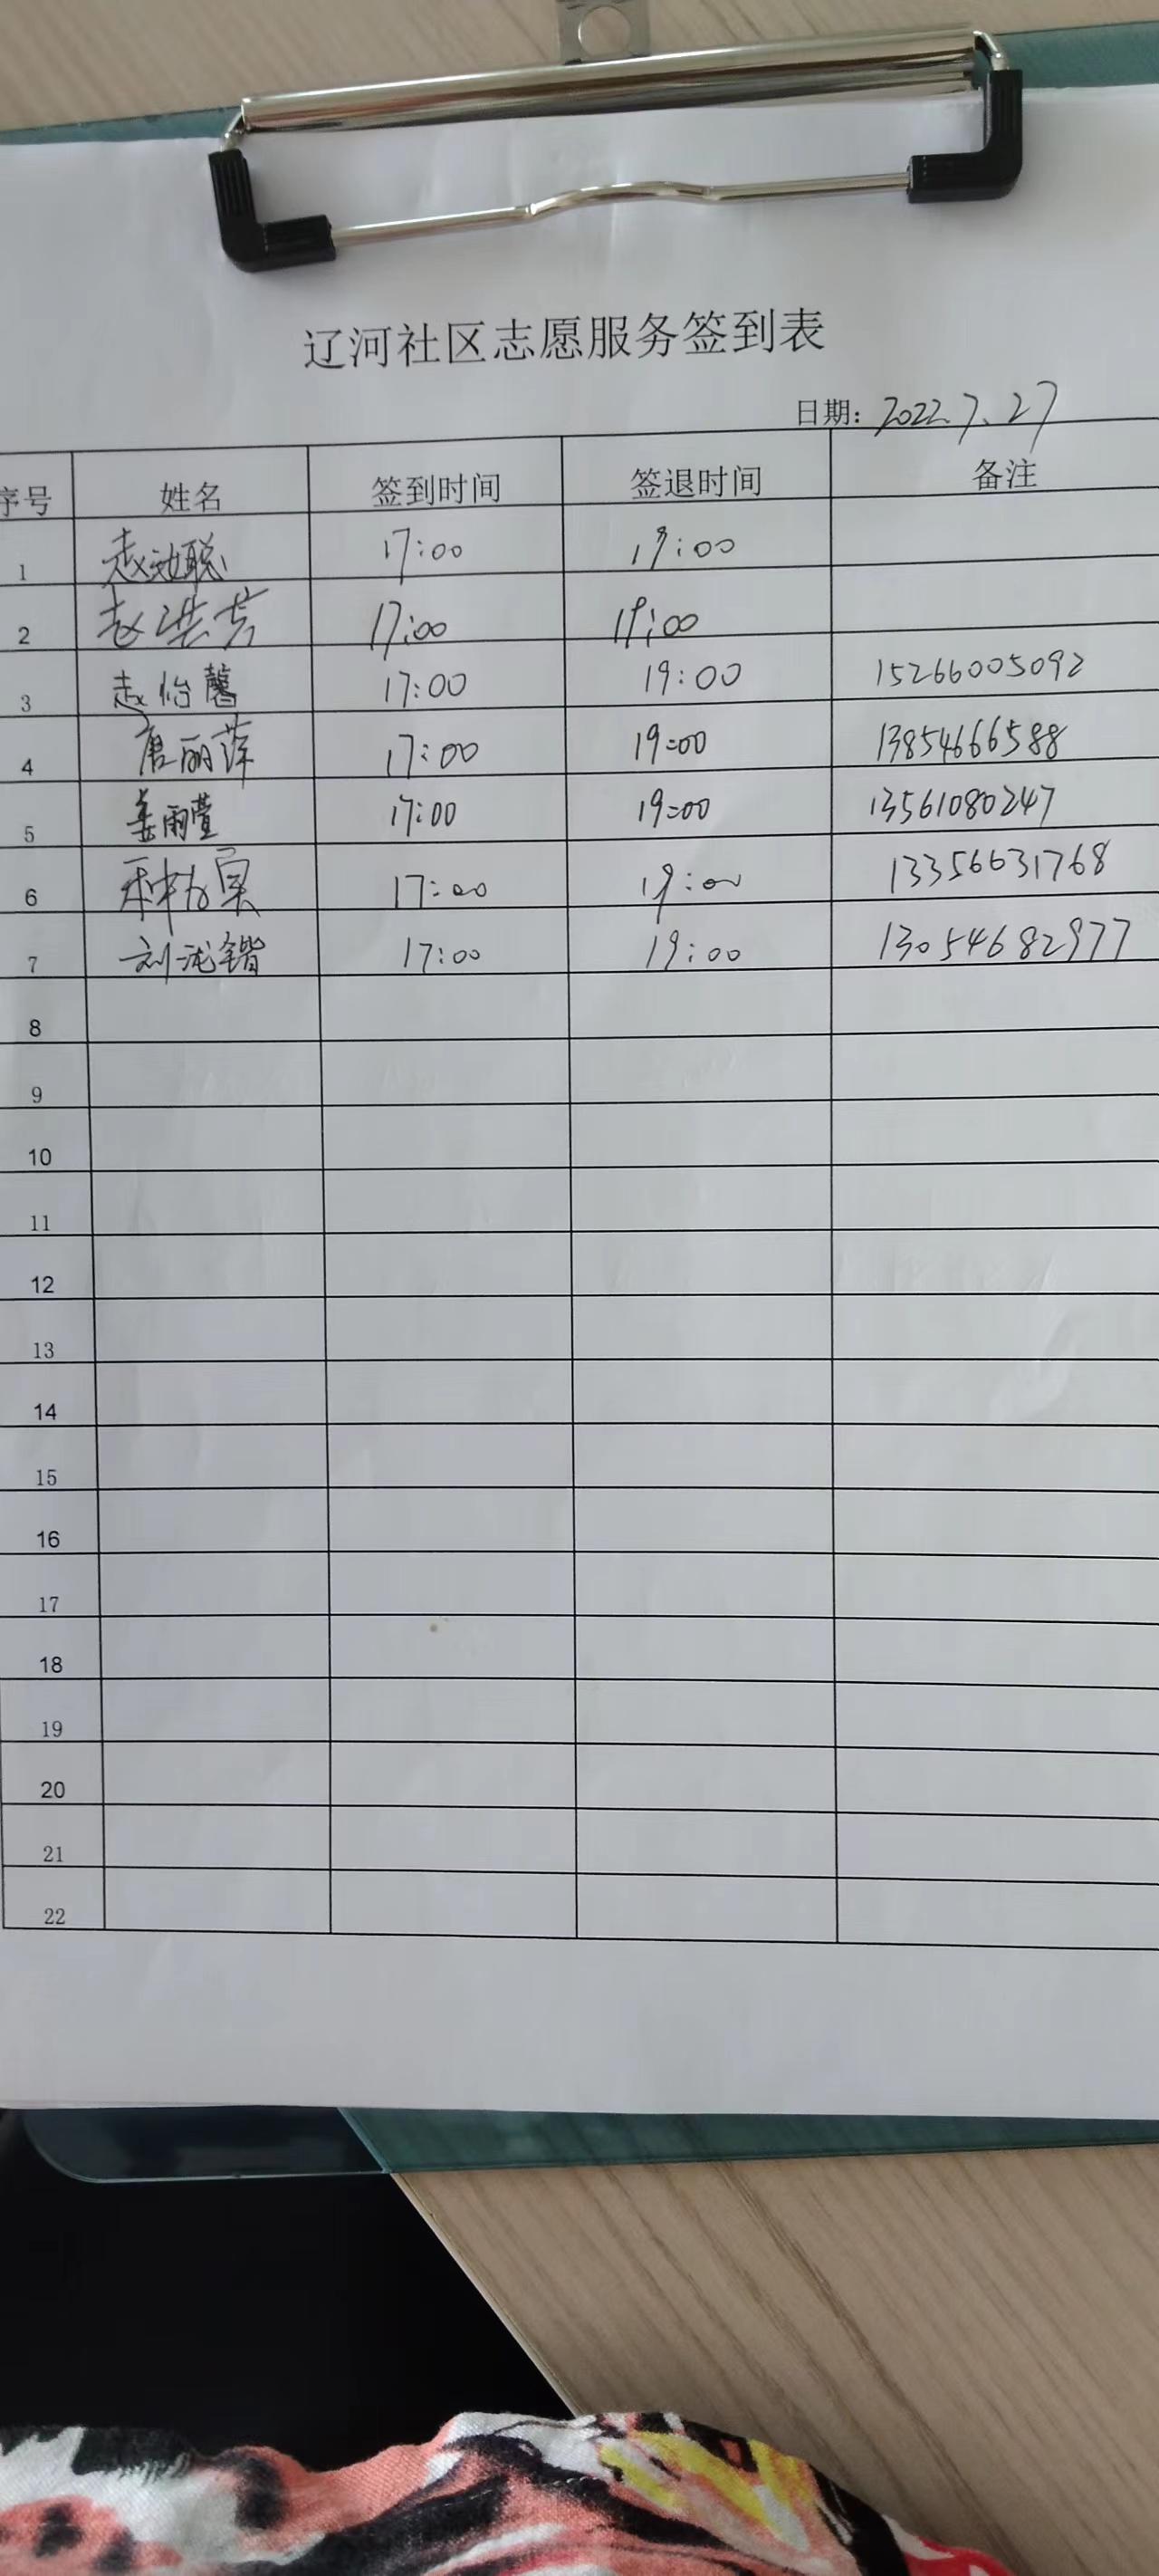 辽河社区志愿服务签到表
日期: 2022.7.27
序号 姓名 签到时间 签退时间 备注
1 赵汝聪 17:00 19:00
2 赵洪 17:00 19:00
3 赵怡馨 17:00 19:00 15266005092
4 唐丽萍 17:00 19:00 13854666588
5 姜雨萱 17:00 19:00 13561080247
6 17:00 19:00 13356631768
7 刘 锴 17:00 19:00 13054682977
8
9
10
11
12
13
14
15
16
17
18
19
20
21
22